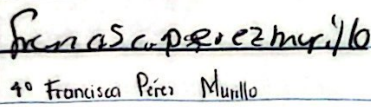 Francisca perez murillo
4º Francisca Pérez Murillo